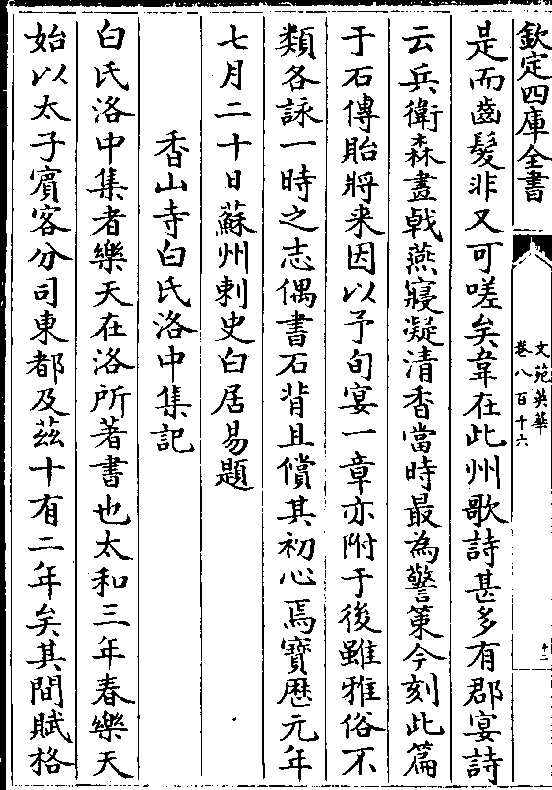 欽定四庫全書
文苑英華
卷八百十六
十二
是而齒髮非又可嗟矣韋在此州歌詩甚多有郡宴詩
云兵衛森畫戟燕寢凝清香當時最為警策今刻此篇
于石傳貽將来因以予旬宴一章亦附于後雖雅俗不
類各詠一時之志偶書石背且償其初心焉寳歴元年
七月二十日蘇州刺史白居易題
香山寺白氏洛中集記
白氏洛中集者樂天在洛所著書也太和三年春樂天
始以太子賔客分司東都及茲十有二年矣其間賦格